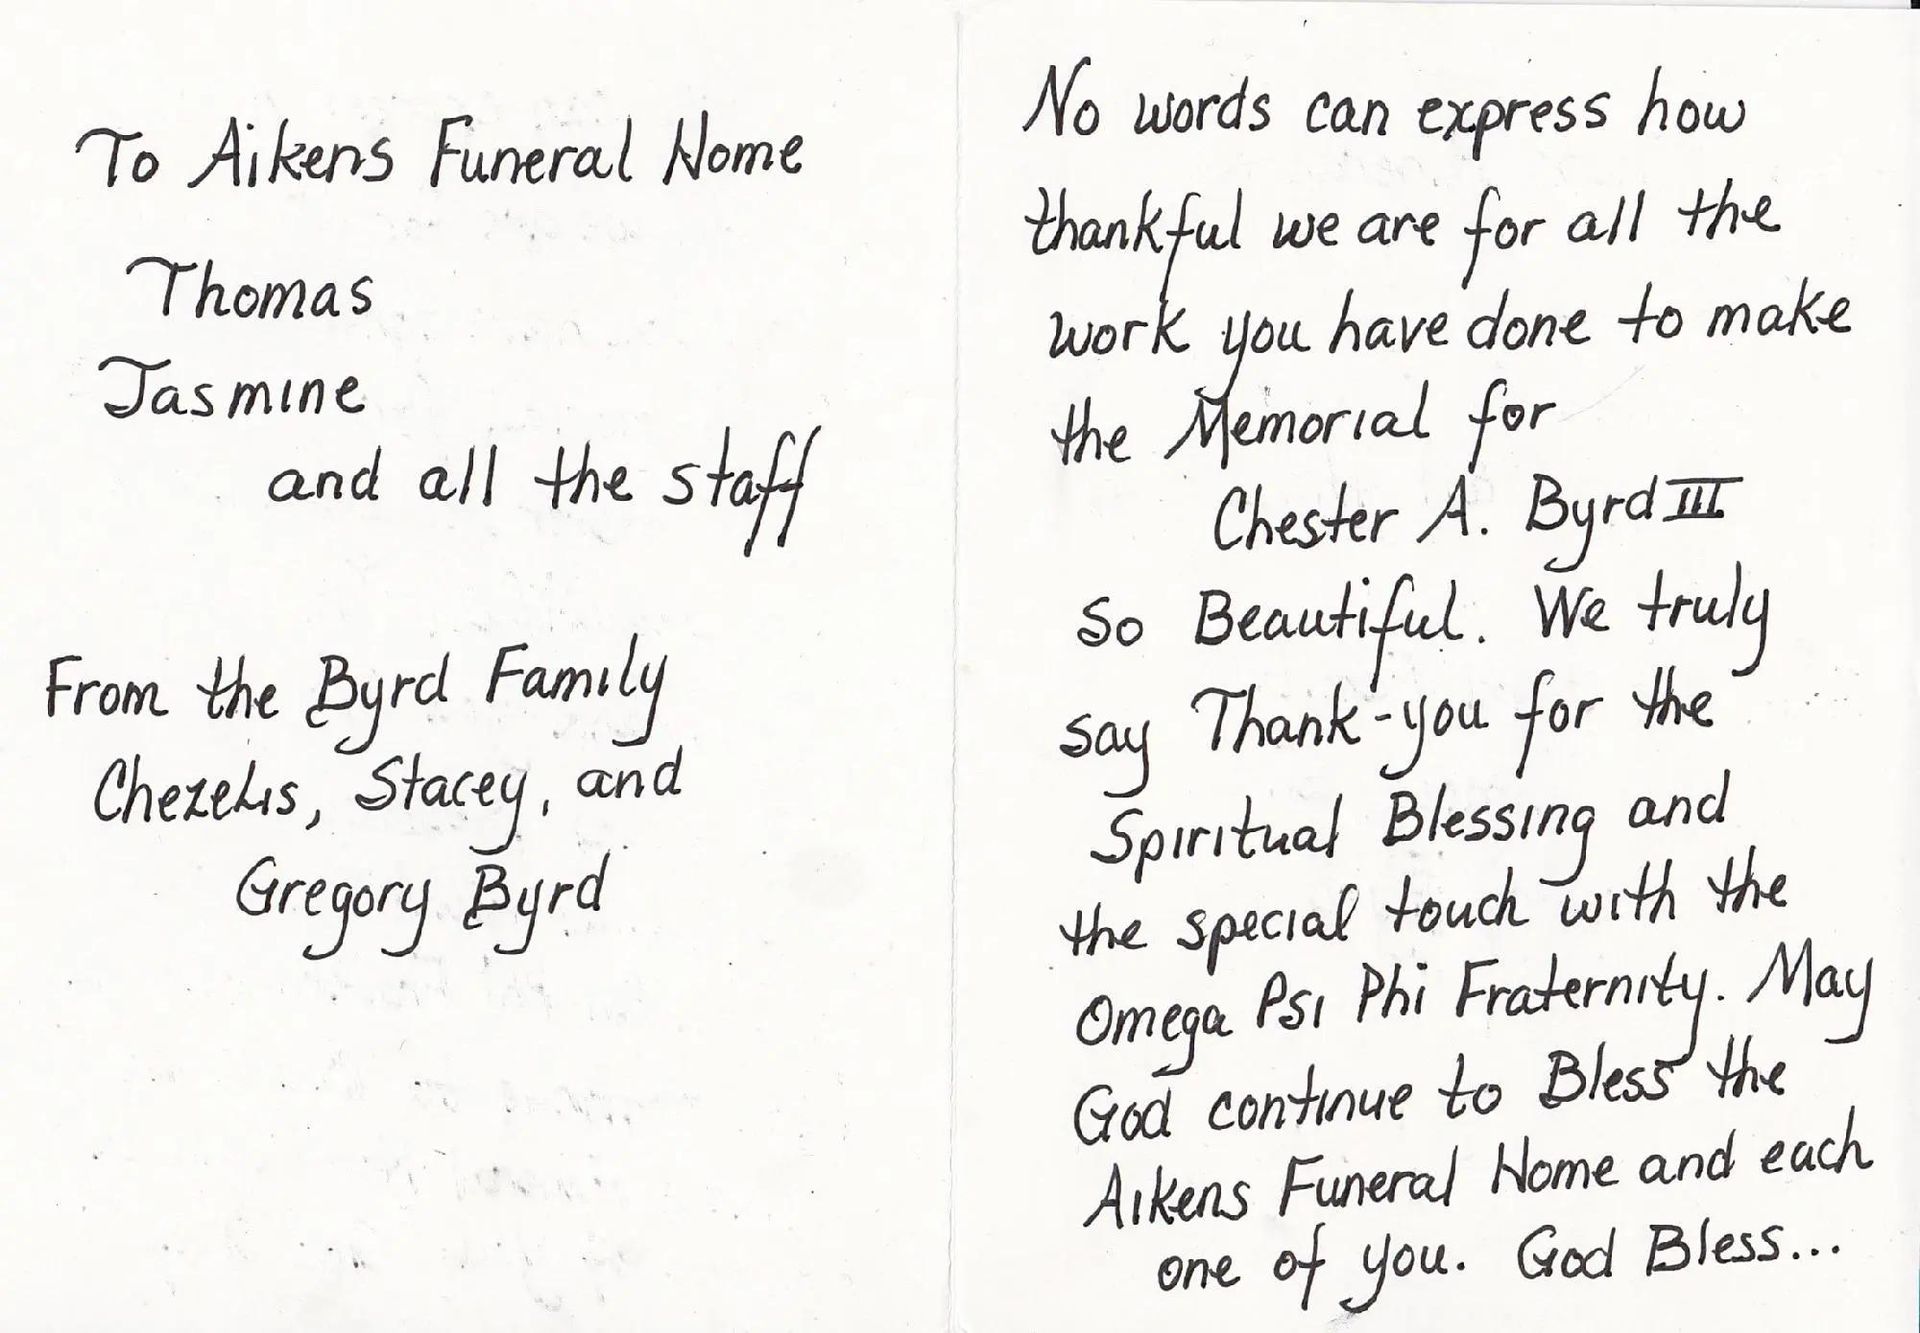 To Aikens Funeral Home
Thomas
Jasmine
and all the staff
From the Byrd Family
Chezelis, Stacey, and
Gregory Byrd
No words can express how
thankful we are for all the
work you have done to make
the Memorial for
Chester A. Byrd III
so Beautiful. We truly
say Thank-you for the
Spiritual Blessing and
the special touch with the
Omega Psi Phi Fraternity. May
God continue to Bless the
Aikens Funeral Home and each
one of you. God Bless...